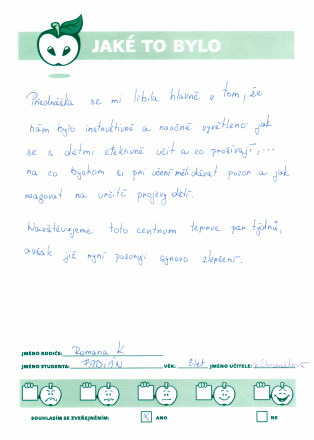 JAKÉ TO BYLO
Přednáška se mi líbila hlavně v tom, že
nám bylo instruktivně a naučně vysvětleno jak
se s dětmi efektivně učit a co prožívají, ...
na co bychom si při učení měli dávat pozor a jak
reagovat na určité projevy dětí.
Navštěvujeme toto centrum teprve par týdnů,
avšak již nyní pozoruji synovo zlepšení.
JMÉNO RODIČE: Romana K
JMÉNO STUDENTA: FABIÁN VĚK: 8let JMÉNO UČITELE:
SOUHLASÍM SE ZVEŘEJNĚNÍM: X ANO NE